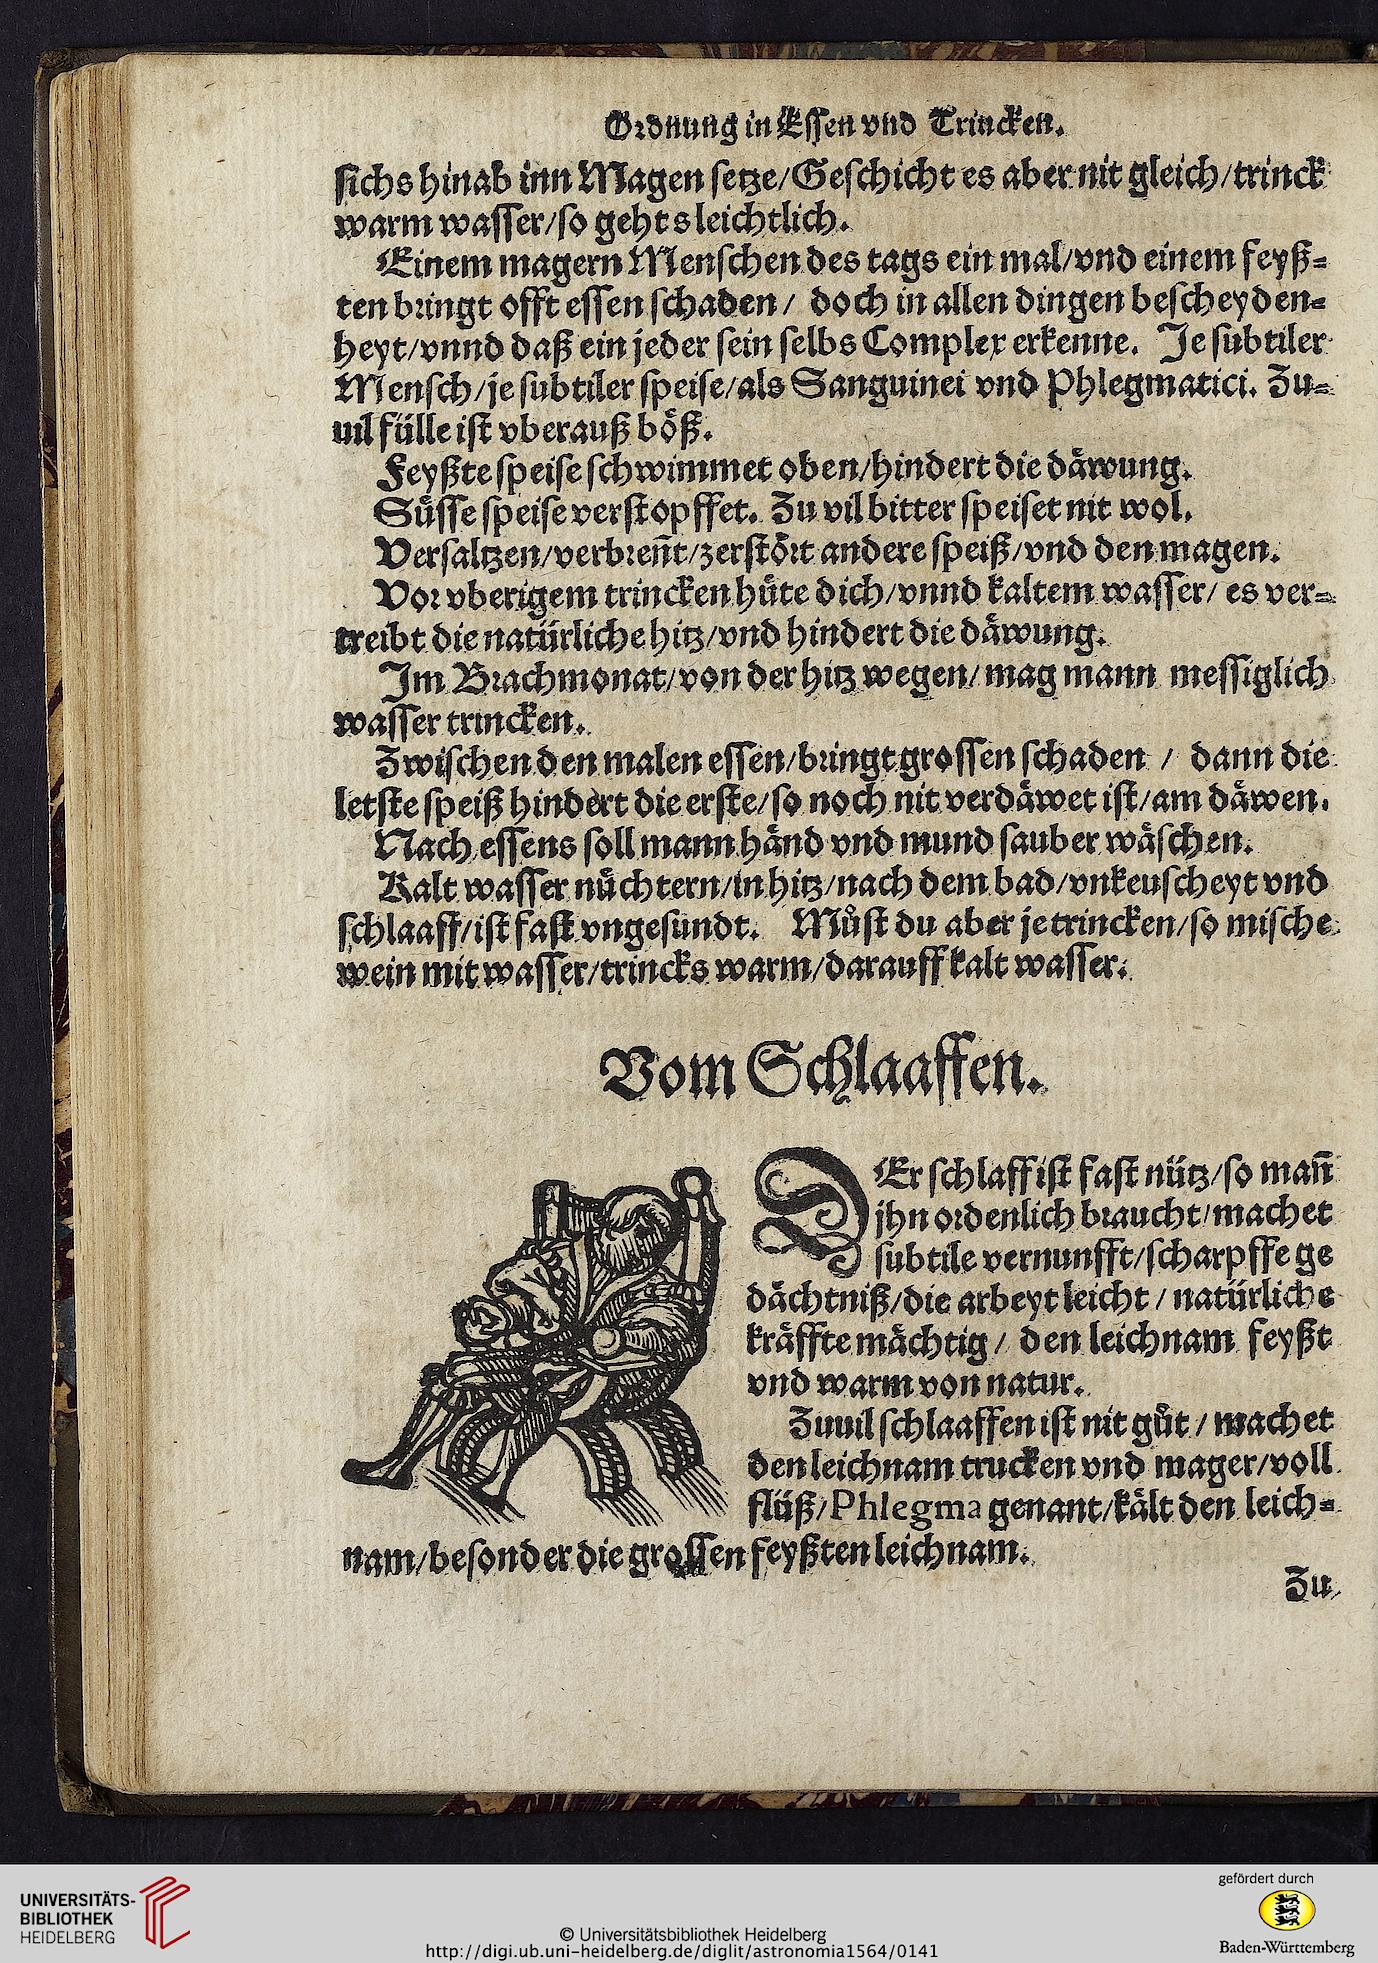 Ordnung in Essen vnd Trincken.
sichs hinab inn Magen setze/Geschicht es aber nit gleich/trinck
warm wasser/so gehts leichtlich.
Einem magern Menschen des tags ein mal/vnd einem feyß=
ten bringt offt essen schaden/ doch in allen dingen bescheyden=
heyt/vnnd daß ein jeder sein selbs Complex erkenne. Je subtiler
Mensch/je subtiler speise/als Sanguinei vnd Phlegmatici. Zu=
uil fülle ist vberauß böß.
Feyßte speise schwimmet oben/hindert die däwung.
Süsse speise verstopffet. Zu vil bitter speiset nit wol.
Versaltzen/verbreñt/zerstört andere speiß/vnd den magen.
Vor vberigem trincken hüte dich/vnnd kaltem wasser/ es ver=
treibt die natürliche hitz/vnd hindert die däwung.
Im Brachmonat/von der hitz wegen/mag mann messiglich
wasser trincken.
Zwischen den malen essen/bringt grossen schaden / dann die
letste speiß hindert die erste/so noch nit verdäwet ist/am däwen.
Nach essens soll mann händ vnd mund sauber wäschen.
Kalt wasser nüchtern/in hitz/nach dem bad/vnkeuscheyt vnd
schlaaff/ist fast vngesundt. Můst du aber je trincken/so mische
wein mit wasser/trincks warm/darauff kalt wasser.
Vom Schlaaffen.
DEr schlaff ist fast nütz/so mañ
jhn ordenlich braucht/machet
subtile vernunfft/scharpffe ge
dächtniß/die arbeyt leicht / natürliche
kräffte mächtig / den leichnam feyßt
vnd warm von natur.
Zuuil schlaaffen ist nit gůt / machet
den leichnam trucken vnd mager/voll
flüß/Phlegma genant/kält den leich=
nam/besonder die grossen feyßten leichnam.
Zu
UNIVERSITÄTS-
BIBLIOTHEK
HEIDELBERG
© Universitätsbibliothek Heidelberg
http://digi.ub.uni-heidelberg.de/diglit/astronomia1564/0141
gefördert durch
Baden-Württemberg